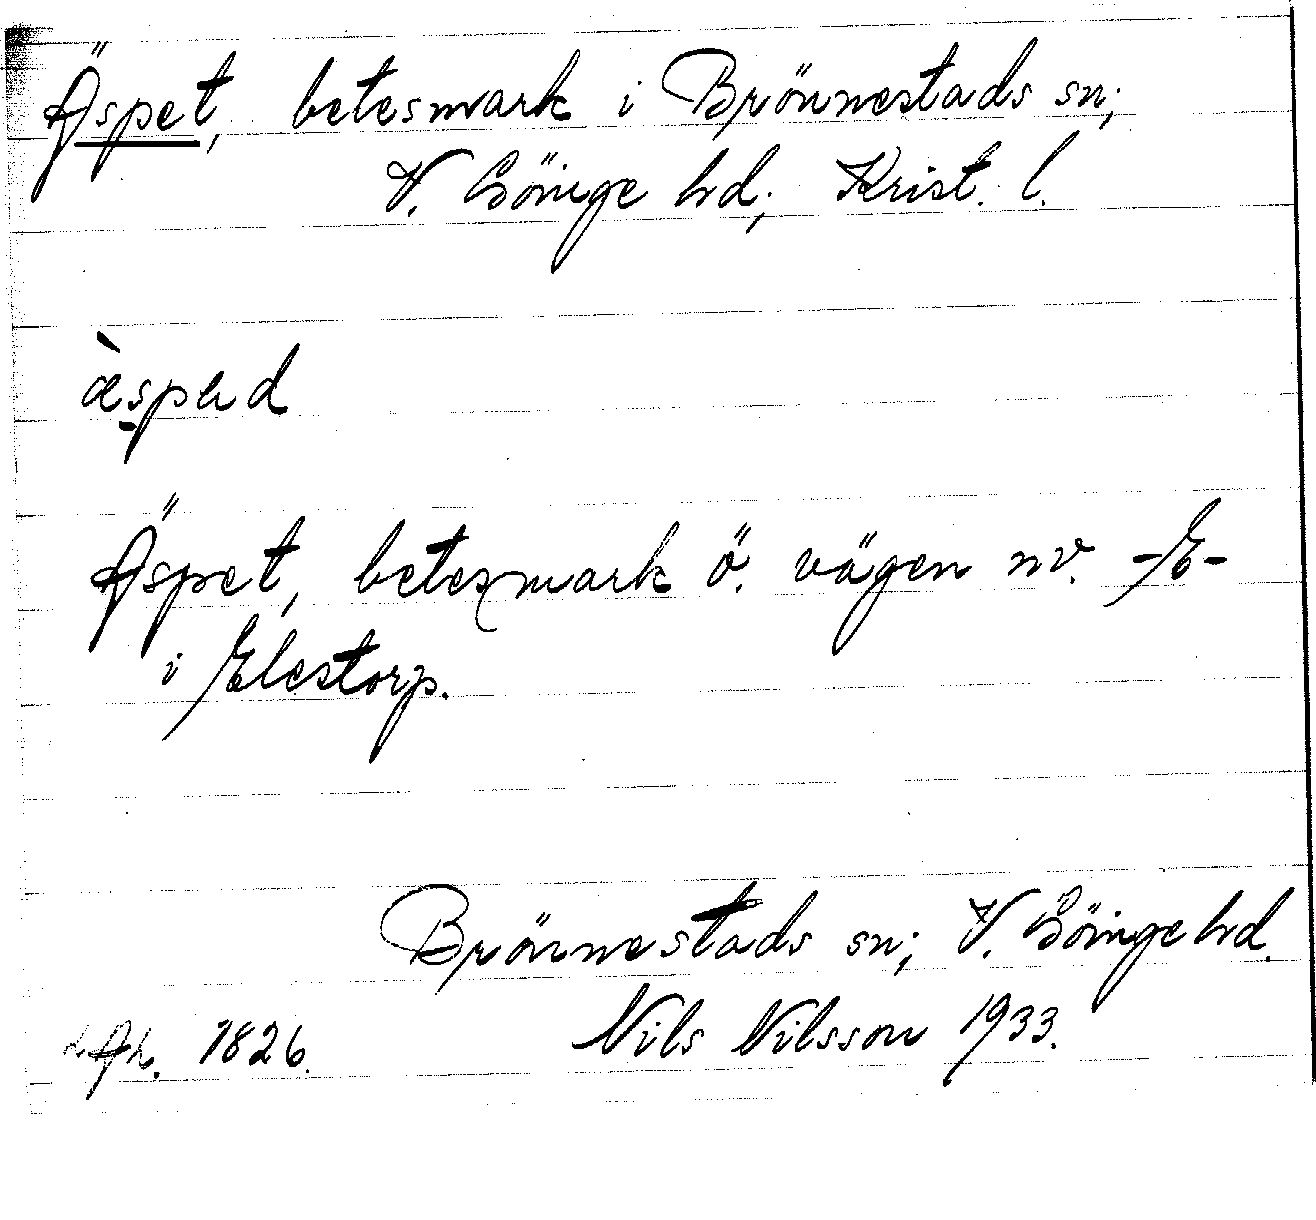 Äspet, betesmark i Brönnestads sn;
V. Göinge hd; Krist. l.
Äspet, betesmark ö. vägen nv. -E-
i Elestorp.
Brönnestads sn; V. Göinge hd.
Nils Nilsson 1933.
1826.